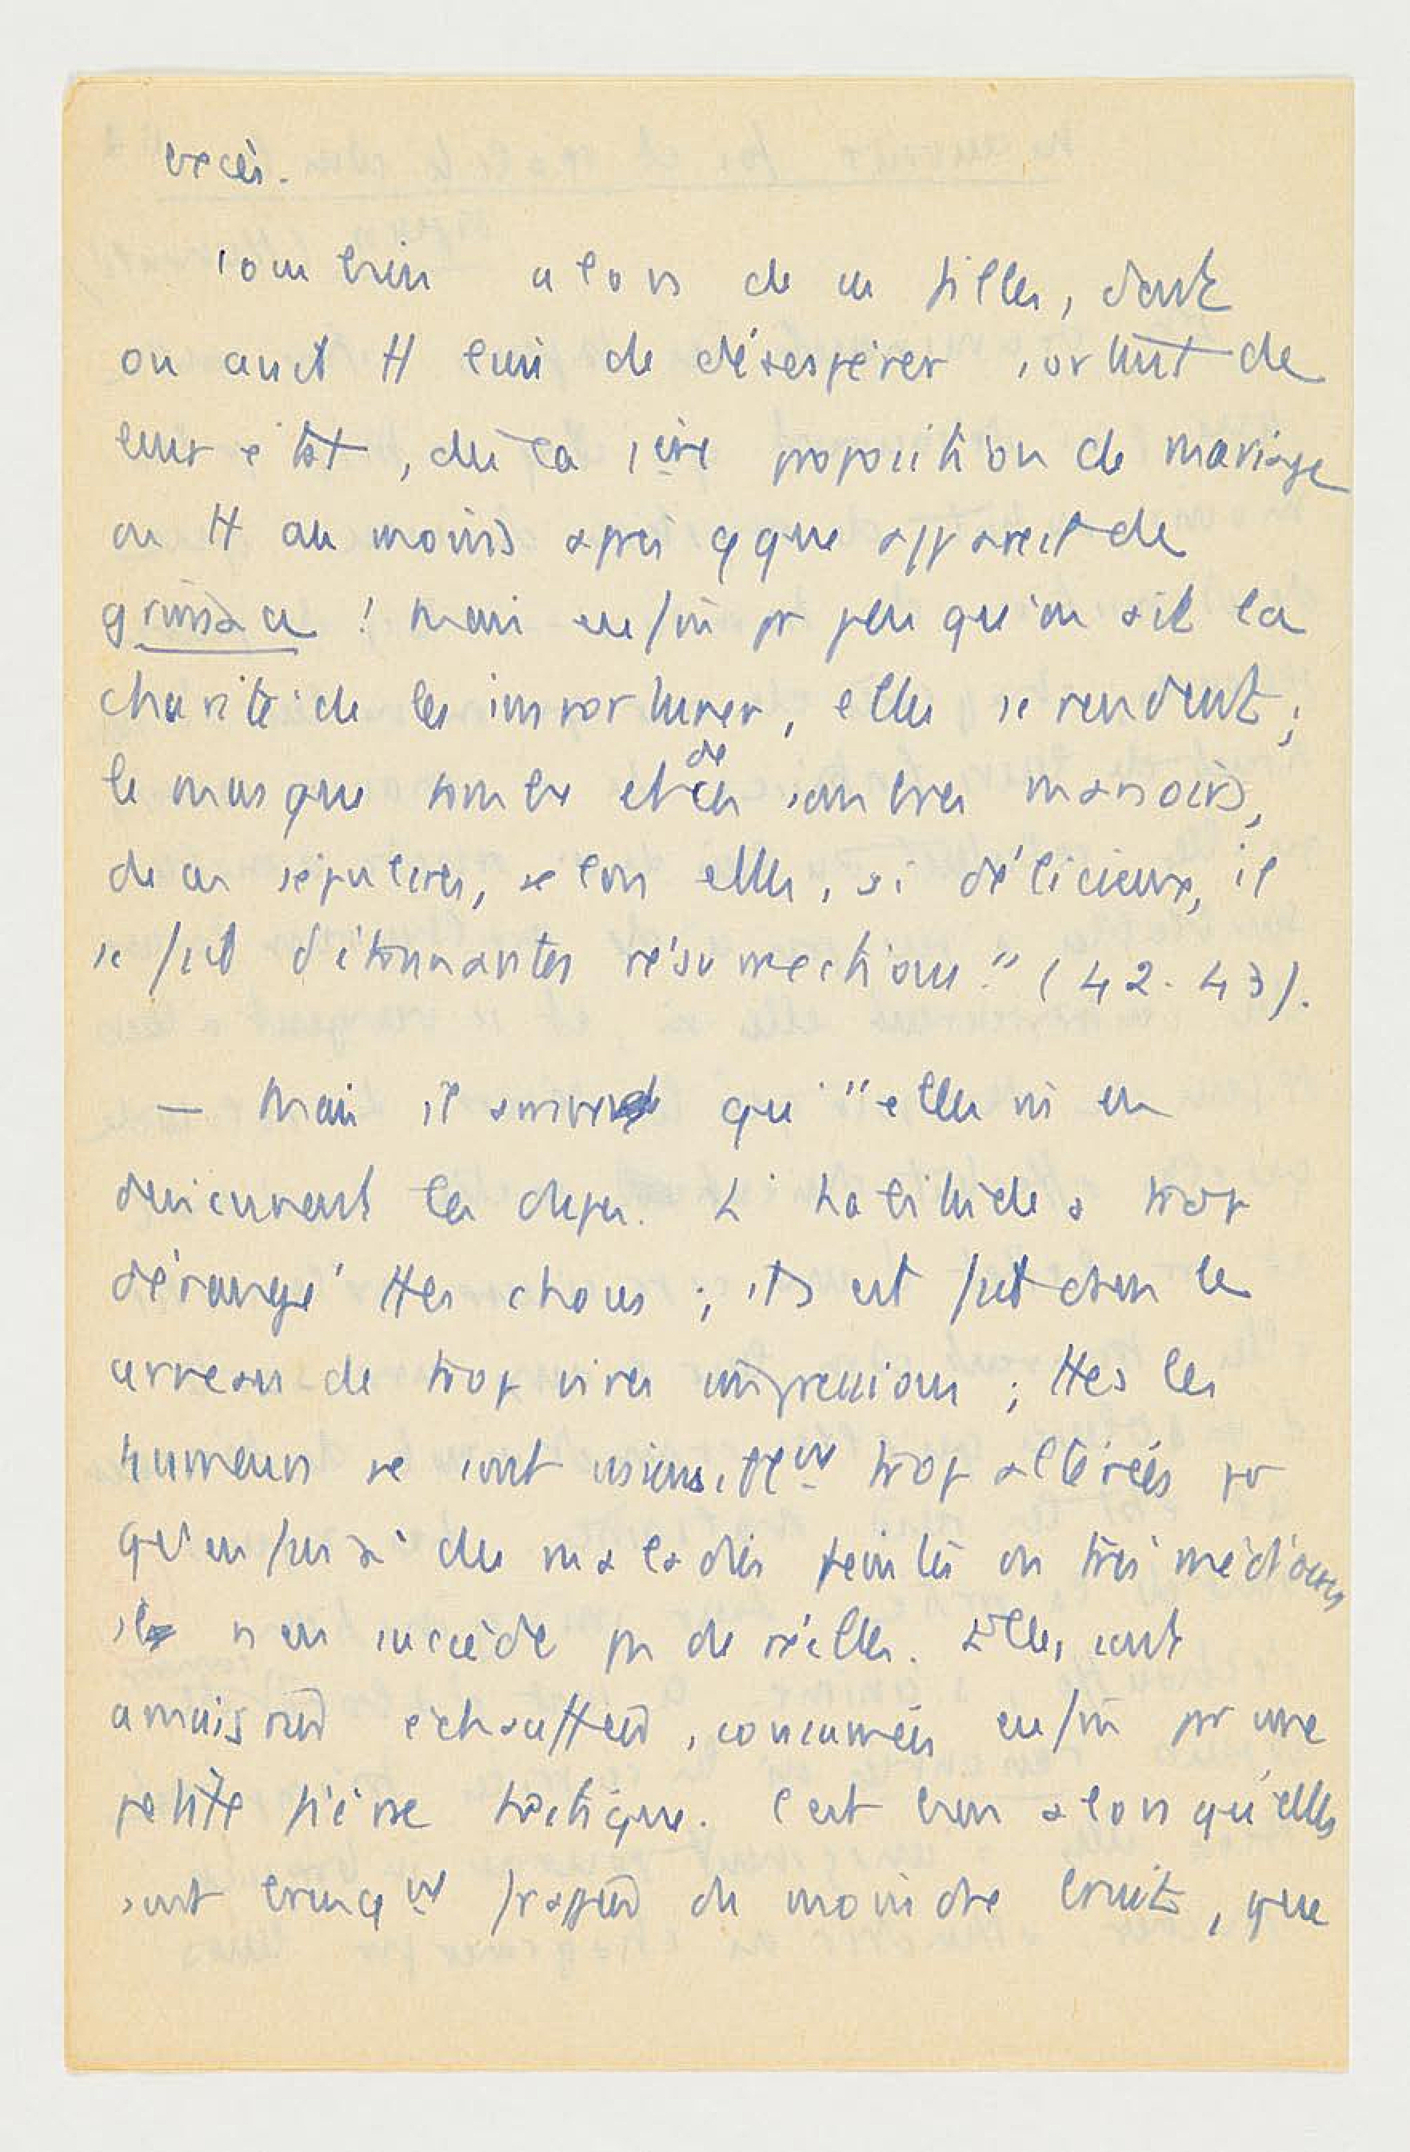 excès.
combien alors de ces filles, dont
on avait tt lieu de désespérer sortent de
leur état, dès la 1ère proposition de mariage
ou tt au moins après qque appareil de
grimace ! Mais enfin pr peu qu'on ait la
charité de les importuner, elles se rendent ;
le masque tombe et de ces sombres manoirs,
de ces sépulcres, selon elles, si délicieux, il
se fait d'étonnantes résurrections." (42-43).
— Mais il arrive qu' "elles s'en
deviennent les dupes. L' habitude a trop
dérangé ttes choses ; il s'est fait dans le
cerveau de trop vives impressions ; ttes les
humeurs se sont trop altérées pr
qu'enfin à des maladies feintes ou très médiocres
il n'en succède pas de réelles. Elles sont
amaigries échauffées, consumées enfin par une
petite fièvre hectique. C'est bien alors qu'elles
sont frappées du moindre bruit, que